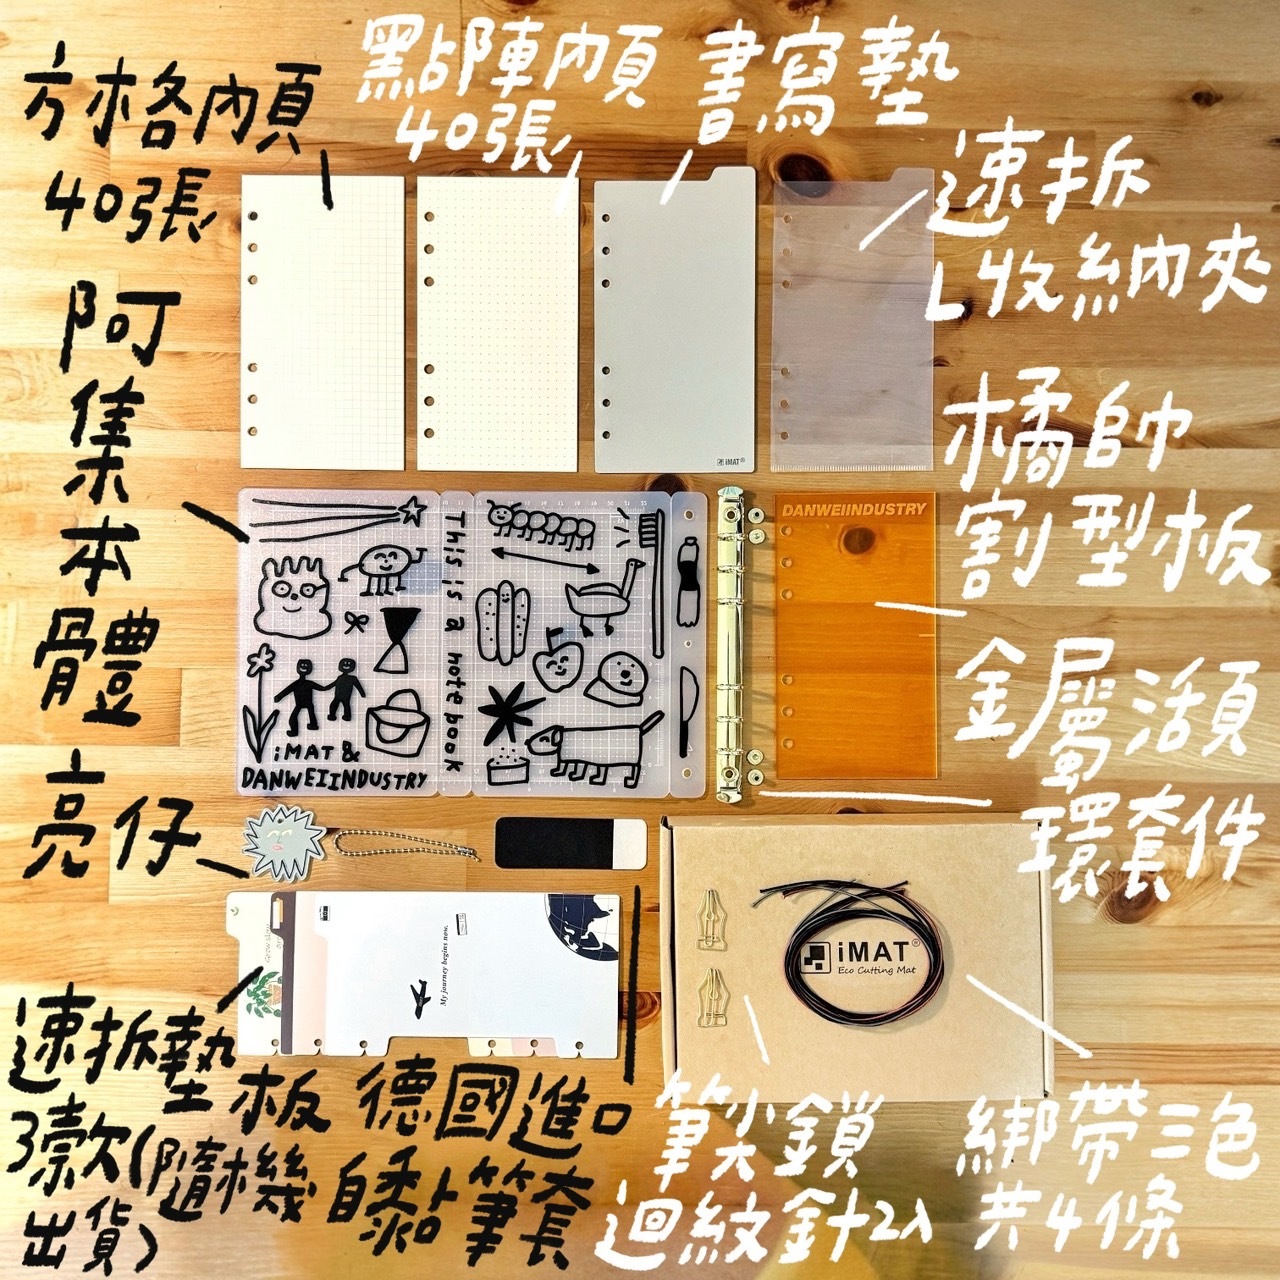 方格內頁
40張
點陣內頁
40張
書寫墊
速拆
L收納夾
阿集本體
橘帥
割型板
DANWEIINDUSTRY
iMAT®
This is a notebook
iMAT &
DANWEIINDUSTRY
金屬活頁
環套件
亮仔
My journey begins now.
iMAT®
Eco Cutting Mat
速拆墊板
3款(隨機
出貨)
德國進口
自黏筆套
筆尖鎖
迴紋針2入
綁帶三色
共4條